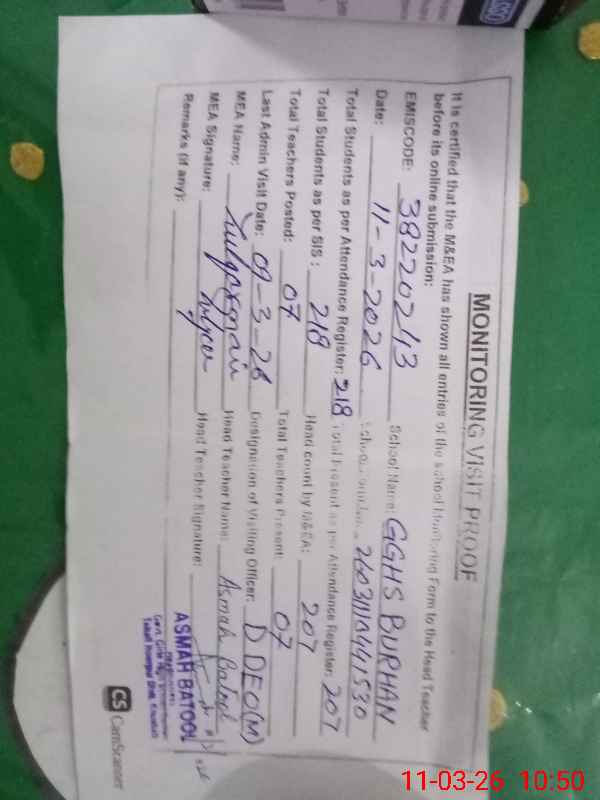 MONITORING VISIT PROOF
It is certified that the M&EA has shown all entries of the school Monitoring Form to the Head Teacher
before its online submission:
EMISCODE: 38220243 School Name: GGHS BURHAN
Date: 11-3-2026
Total Students as per Attendance Register: 218 Total Present as per Attendance Register: 207
Total Students as per SIS: 218 Head count by M&EA: 207
Total Teachers Posted: 07 Total Teachers Present: 07
Last Admin Visit Date: 09-3-26 Designation of Visiting Officer: D DEO(M)
MEA Name: Head Teacher Name: Asmah Batool
MEA Signature: Head Teacher Signature:
Remarks (if any):
ASMAH BATOOL
CS CamScanner
11-03-26 10:50